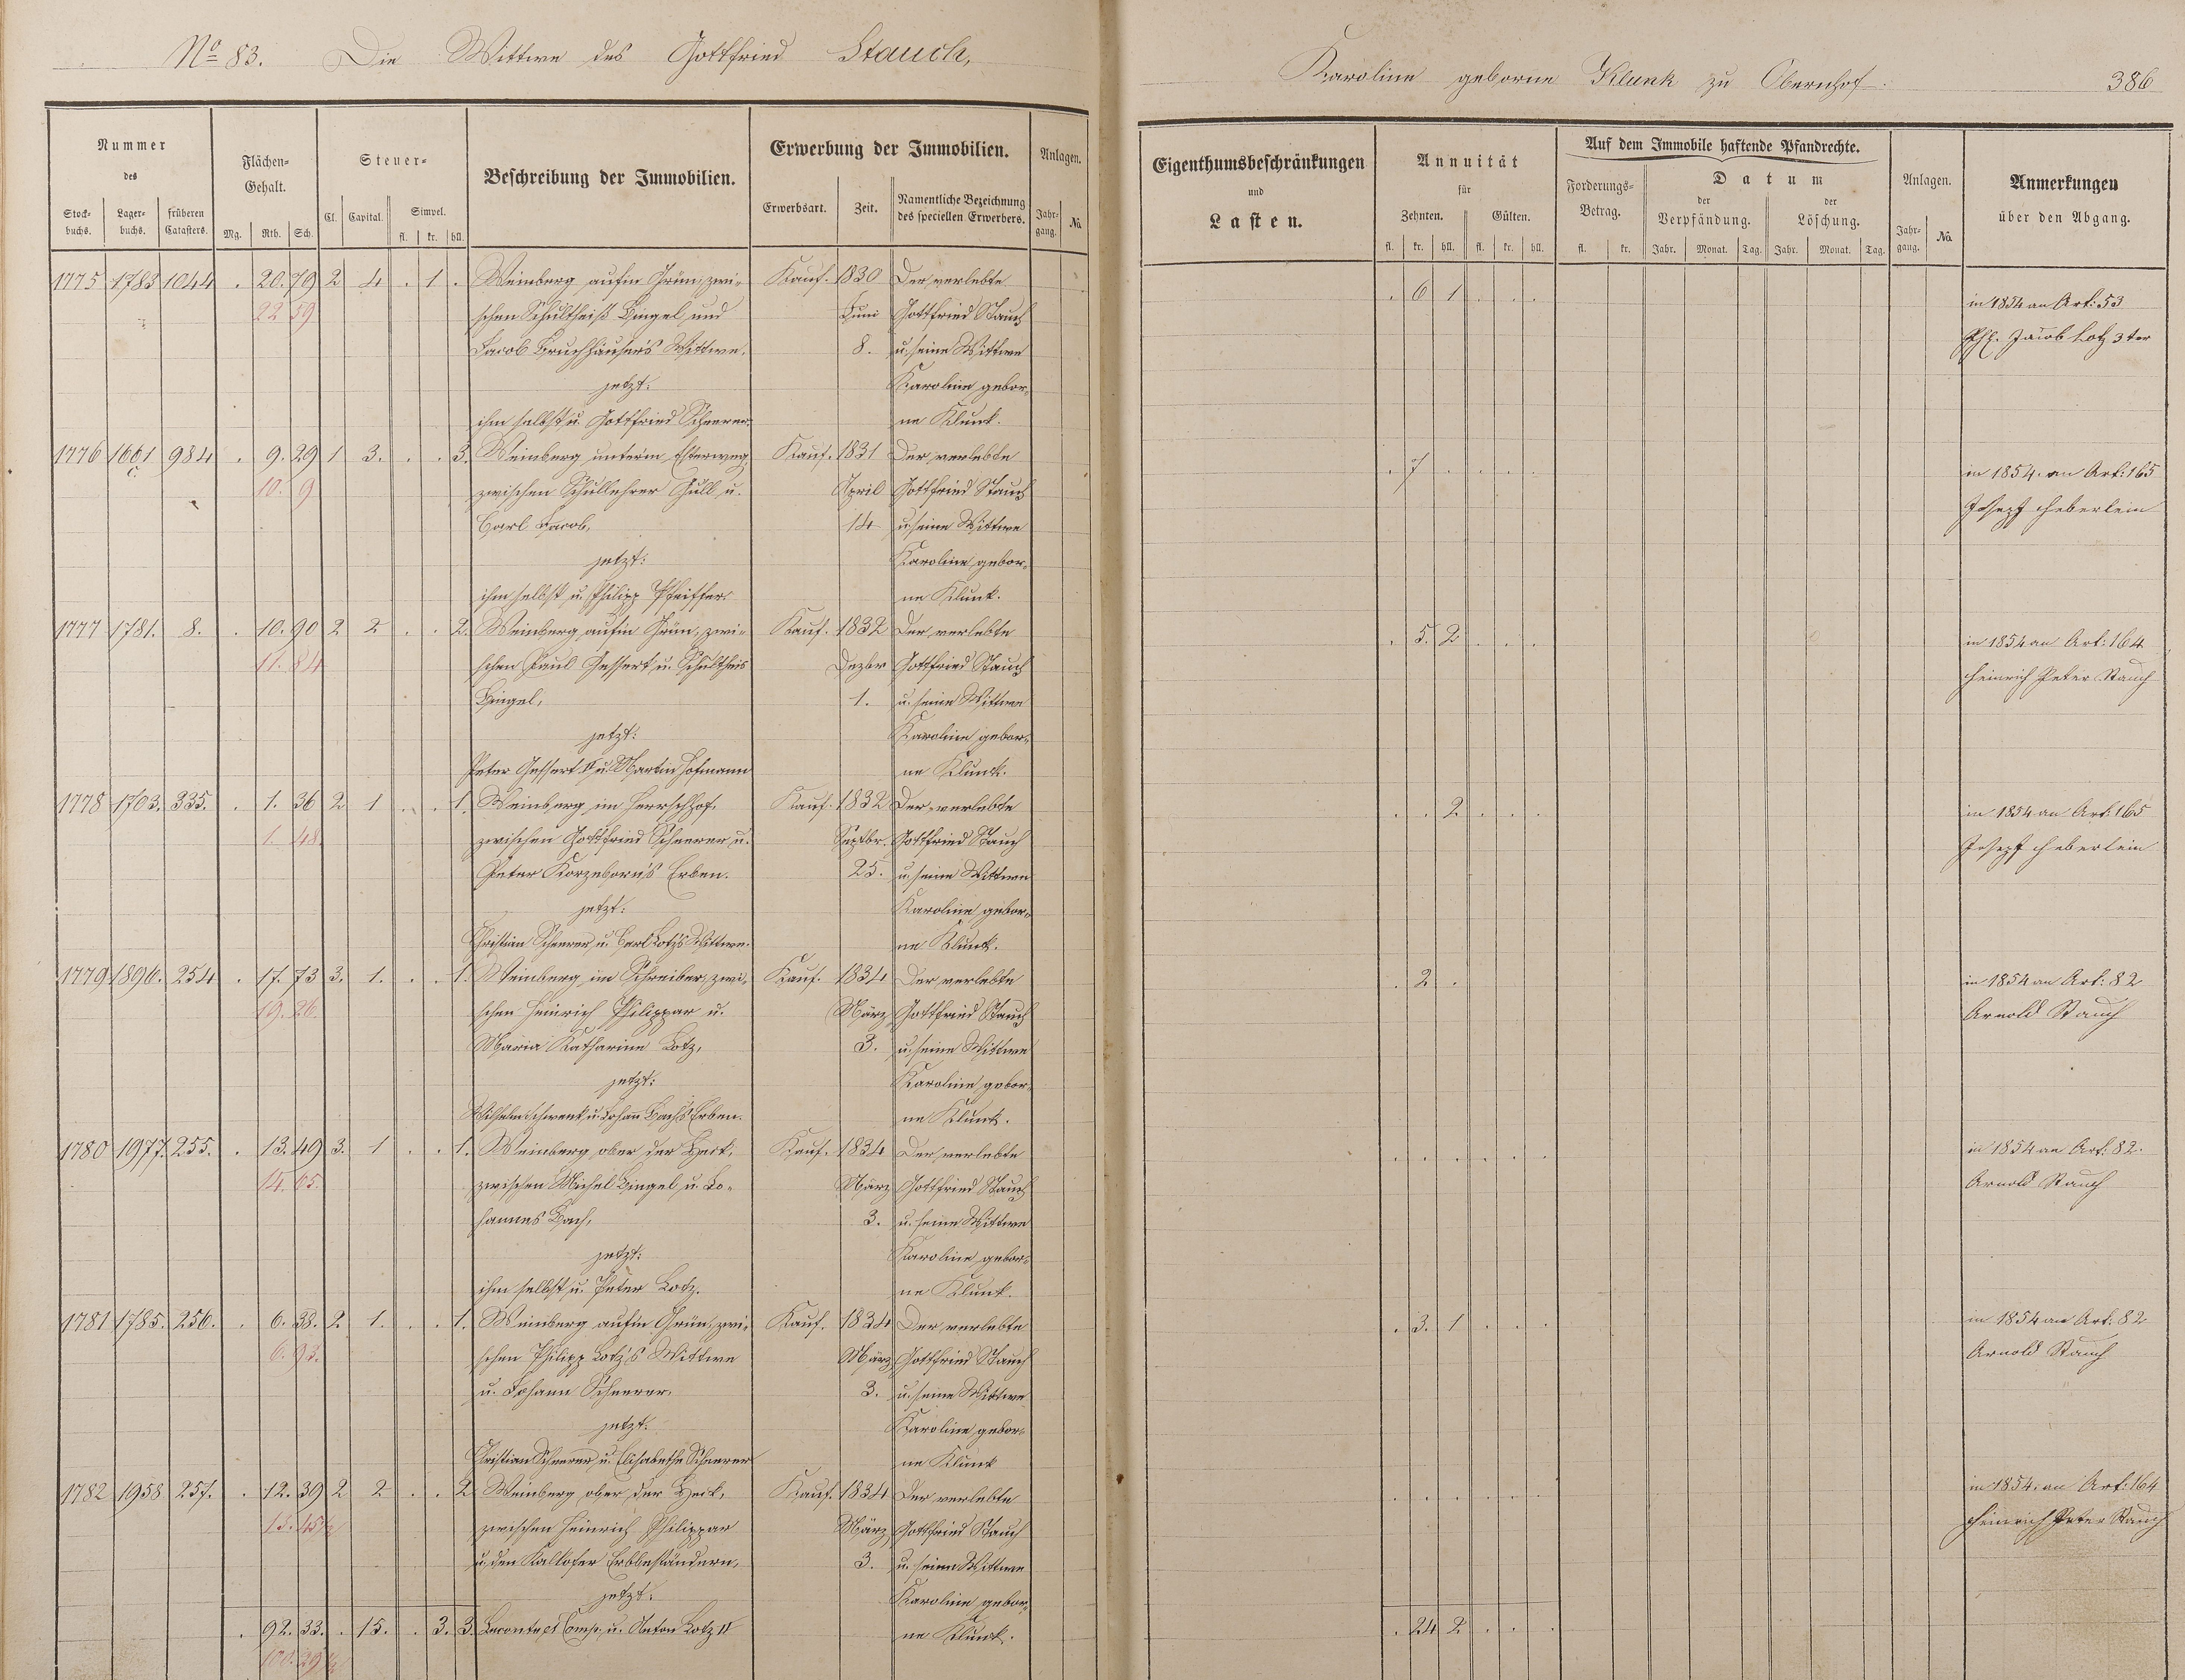 No 83. Die Wittwe des Gottfried Stauch,
Karoline geborne Klunk zu Obernhof.
386
Nummer des
Stockbuchs. Lagerbuchs. früheren Catasters.
Flächen-Gehalt.
Mg. Rth. Sch.
Steuer-
Cl. Capital. Simpel.
fl. kr. hll.
Beschreibung der Immobilien.
Erwerbung der Immobilien.
Erwerbsart. Zeit. Namentliche Bezeichnung des speciellen Erwerbers.
Anlagen.
Jahrgang. No.
Eigenthumsbeschränkungen und Lasten.
Annuität für
Zehnten. Gülten.
fl. kr. hll. fl. kr. hll.
Auf dem Immobile haftende Pfandrechte.
Forderungs-Betrag. Datum
der Verpfändung. der Löschung.
fl. kr. Jahr. Monat. Tag. Jahr. Monat. Tag.
Anlagen.
Jahrgang. No.
Anmerkungen über den Abgang.
1775 1783 1044 . 20. 79 2 4 . 1 . Weinberg aufm Grün, zwi- Kauf. 1830 Der verlebte . 6 1 . . . in 1854 an Art: 53
22 59 schen Schultheiß Bingel und Juni Gottfried Stauch Phil. Jacob Lotz 3ter
Jacob Bruchhäuser's Wittwe. 8. u. seine Wittwe
jetzt: Karoline gebor-
ihm selbst u. Gottfried Scheerer. ne Klunk.
1776 1661 c 984 . 9. 29 1 3. . . 3. Weinberg unterm Esterweg, Kauf. 1831 Der verlebte . 7 . . . . in 1854. an Art: 165
10. 9 zwischen Schullehrer Gull u. April Gottfried Stauch Joseph Heberlein
Carl Jacob, 14 u. seine Wittwe
jetzt: Karoline gebor-
ihm selbst u. Philipp Pfeiffer. ne Klunk.
1777 1781. 8. . 10. 90 2 2 . . 2. Weinberg aufm Grün, zwi- Kauf. 1832 Der verlebte . 5. 2 . . . in 1854 an Art: 164
11. 84 schen Paul Gessert u. Schultheis Dezbr Gottfried Stauch Heinrich Peter Stauch
Bingel, 1. u. seine Wittwe
jetzt: Karoline gebor-
Peter Gessert II u. Martin Hofmann ne Klunk.
1778 1703. 335. . 1. 36 2 1 . . 1. Weinberg im Herrschhof, Kauf. 1832 Der verlebte . . 2 . . . in 1854 an Art: 165
1. 48. zwischen Gottfried Scheerer u. Septbr. Gottfried Stauch Joseph Heberlein
Peter Korzeborn's Erben. 25. u. seine Wittwe
jetzt: Karoline gebor-
Christian Scheerer u. Carl Lotz's Wittwe. ne Klunk.
1779 1896. 254 . 17. 73 3. 1. . . 1. Weinberg im Schreiber, zwi- Kauf. 1834 Der verlebte . 2 . in 1854 an Art: 82
19. 26. schen Heinrich Philippar u. März Gottfried Stauch Arnold Stauch
Maria Katharine Lotz, 3. u. seine Wittwe
jetzt: Karoline gebor-
Wilhelm Schwenk u. Johann Bach's Erben. ne Klunk.
1780 1977. 255. . 13. 49 3. 1 . . 1. Weinberg ober der Heck, Kauf. 1834 Der verlebte . . . . . . in 1854 an Art: 82.
14. 65. zwischen Michel Bingel u. Jo- März Gottfried Stauch Arnold Stauch
hannes Bach, 3. u. seine Wittwe
jetzt: Karoline gebor-
ihm selbst u. Peter Lotz. ne Klunk.
1781 1785. 256. . 6. 38. 2 1. . . 1. Weinberg aufm Grün, zwi- Kauf. 1834 Der verlebte . 3. 1 . . . in 1854 an Art: 82
6. 93. schen Philipp Lotz's Wittwe März Gottfried Stauch Arnold Stauch
u. Johann Scheerer, 3. u. seine Wittwe
jetzt: Karoline gebor-
Christian Scheerer u. Elisabetha Scheerer ne Klunk
1782 1958 257. . 12. 39 2 2 . . 2 Weinberg ober der Heck, Kauf. 1834 Der verlebte . . . . . . in 1854. an Art: 164
13. 45½ zwischen Heinrich Philippar März Gottfried Stauch Heinrich Peter Stauch
u. den Kalkofer Erbbeständern, 3. u. seine Wittwe
jetzt: Karoline gebor-
. 92. 33. . 15. . 3. 3. Comp. u. Anton Lotz II ne Klunk. . 24 2 . . .
100. 29½